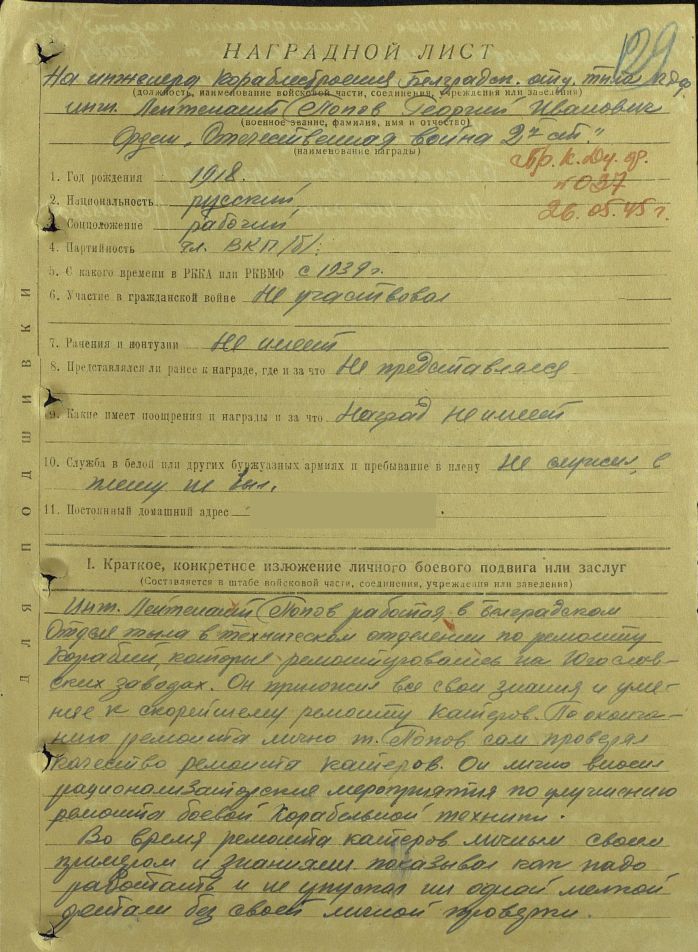 129
НАГРАДНОЙ ЛИСТ
На инженера кораблестроения Белградск. отд. тыла КДф
(должность, наименование войсковой части, соединения, учреждения или заведения)
инж. Лейтенант Попов Георгий Иванович
(военное звание, фамилия, имя и отчество)
Орден „Отечественная война 2й ст."
(наименование награды)
Пр. К. Ду. ф.
№ 037
26.05.45 г.
1. Год рождения 1918.
2. Национальность русский
3. Соцположение рабочий
4. Партийность чл. ВКП/б/:
5. С какого времени в РККА или РКВМФ с 1939 г.
6. Участие в гражданской войне Не участвовал
7. Ранения и контузии Не имеет
8. Представлялся ли ранее к награде, где и за что Не представлялся
9. Какие имеет поощрения и награды и за что Наград не имеет
10. Служба в белой или других буржуазных армиях и пребывание в плену Не служил, в
плену не был.
11. Постоянный домашний адрес
ДЛЯ ПОДШИВКИ
I. Краткое, конкретное изложение личного боевого подвига или заслуг
(Составляется в штабе войсковой части, соединения, учреждения или заведения)
Инж. Лейтенант Попов работая в Белградском
Отделе тыла в техническом отделении по ремонту
Кораблей, которые ремонтировались на Югослов-
ских заводах. Он приложил все свои знания и уме-
ние к скорейшему ремонту катеров. По оконча-
нию ремонта лично т. Попов сам проверял
качество ремонта катеров. Он лично вносил
рационализаторские мероприятия по улучшению
ремонта боевой Корабельной техники.
Во время ремонта катеров личным своим
примером и знаниями показывал как надо
работать и не упускал ни одной мелкой
детали без своей личной проверки.